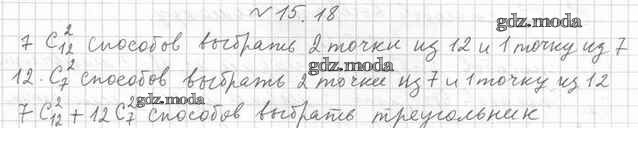 №15.18
gdz.mozg
7 C²₁₂ способов выбрать 2 точки из 12 и 1 точку из 7
gdz.mozg
12·C²₇ способов выбрать 2 точки из 7 и 1 точку из 12
gdz.mozg
7 C²₁₂ + 12 C²₇ способов выбрать треугольник